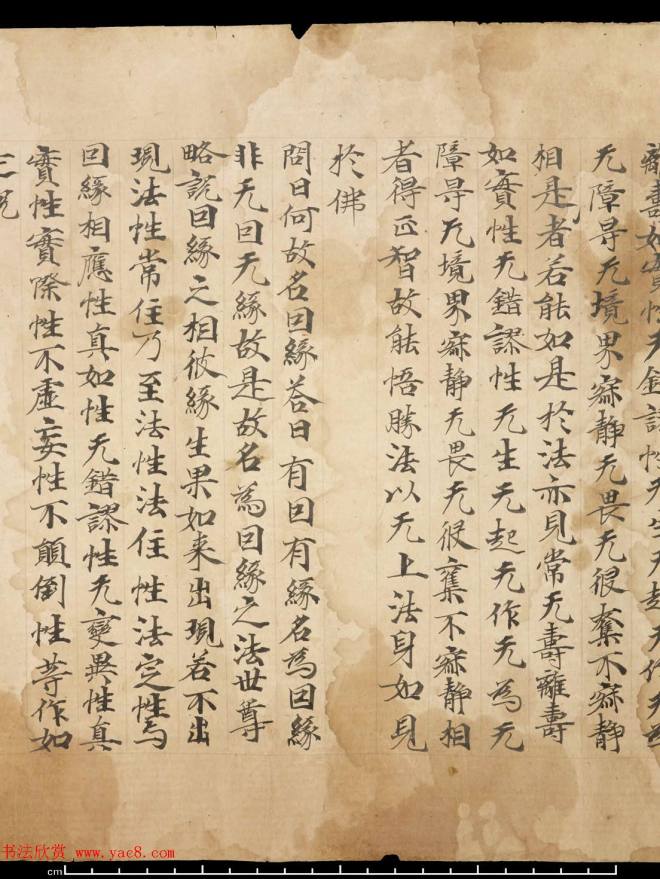 離壽如實性无錯謬性无生无起无作无為
无障㝵无境界寂静无畏无侵奪不寂静
相是者若能如是於法亦見常无壽離壽
如實性无錯謬性无生无起无作无為无
障㝵无境界寂静无畏无侵奪不寂静相
者得正智故能悟勝法以无上法身如見
於佛
問曰何故名囙緣荅曰有囙有緣名為囙緣
非无囙无緣故是故名為囙緣之法世尊
略說囙緣之相彼緣生果如来出現若不出
現法性常住乃至法性法住性法定性与
囙緣相應性真如性无錯謬性无變異性真
實性實際性不虛妄性不顛倒性等作如
书法欣赏 www.yac8.com
cm